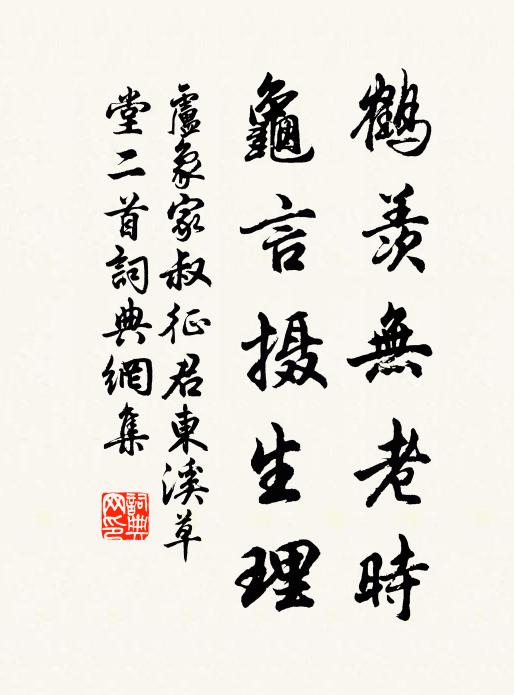 鶴羨無老時
龜言摄生理
盧象家叔征君東溪草
堂二首詞典網集
詞典网印